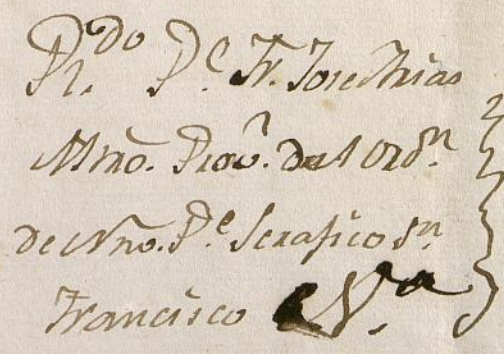 R.do P.e Fr. Jose Arias
Mtro. Prov.l del Ord.n
de Nro. P.e Serafico S.n
Francisco